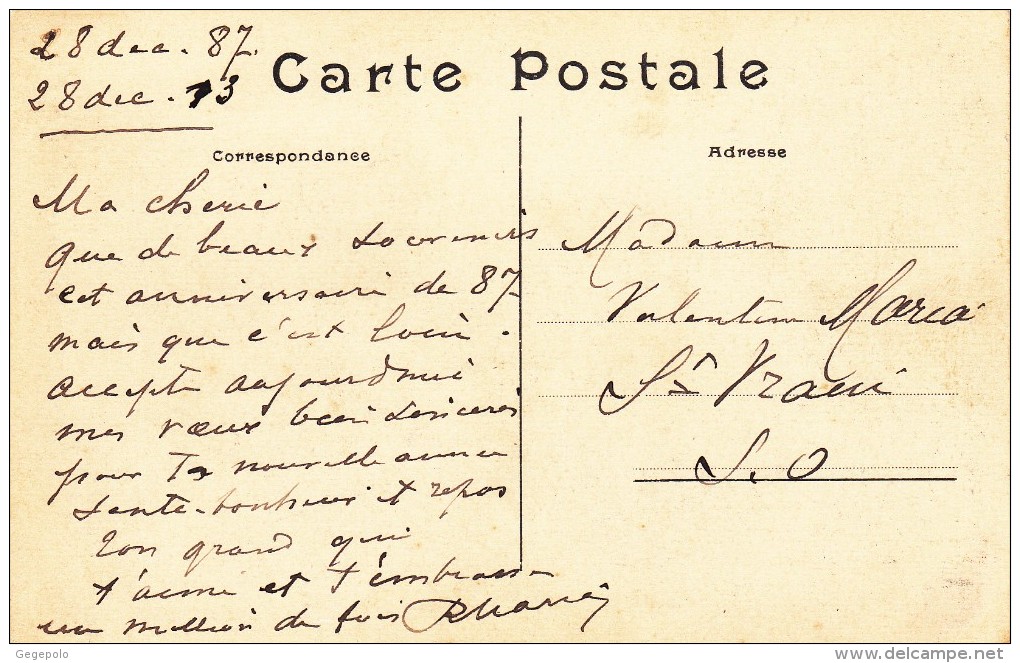 28 dec. 87.
28 dec. 13
Carte Postale
Correspondance
Ma cherie
que de beaux souvenirs
cet anniversaire de 87
mais que c'est loin.
accepte aujourd'hui
mes vœux bien sincères
pour Ta nouvelle année
Santé-bonheur et repos
Ton grand qui
t'aime et t'embrasse
un million de fois
Adresse
Madame
Valentine Maria
St Vrain
S. O
Gegepolo
delcampe.net